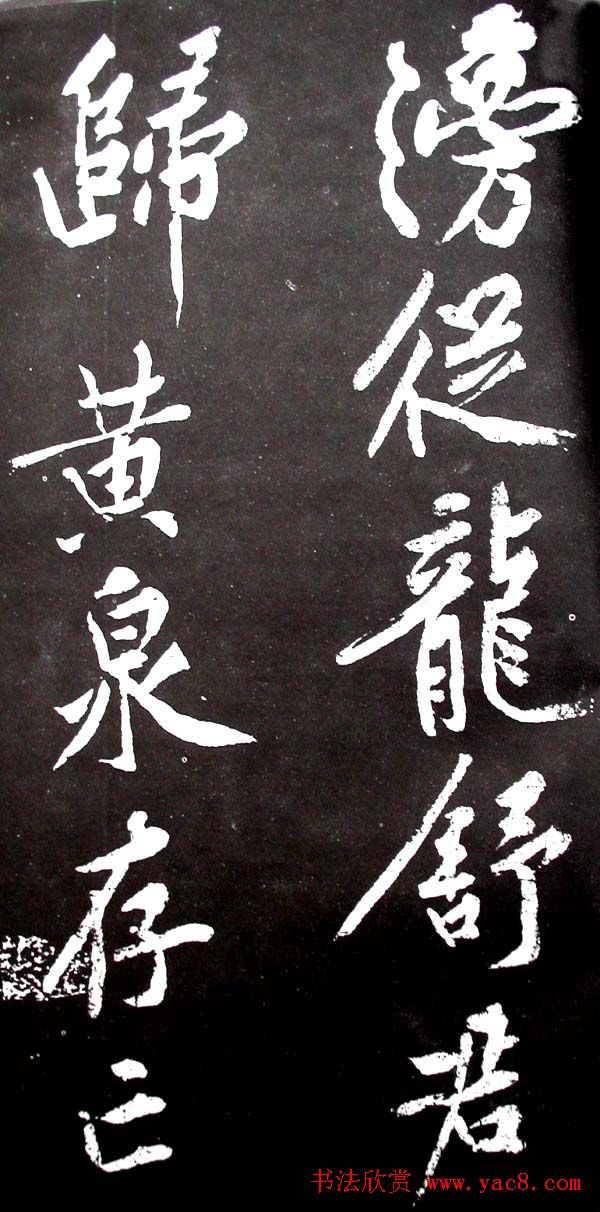 滂從龍舒君
歸黃泉存亡
书法欣赏 www.yac8.com